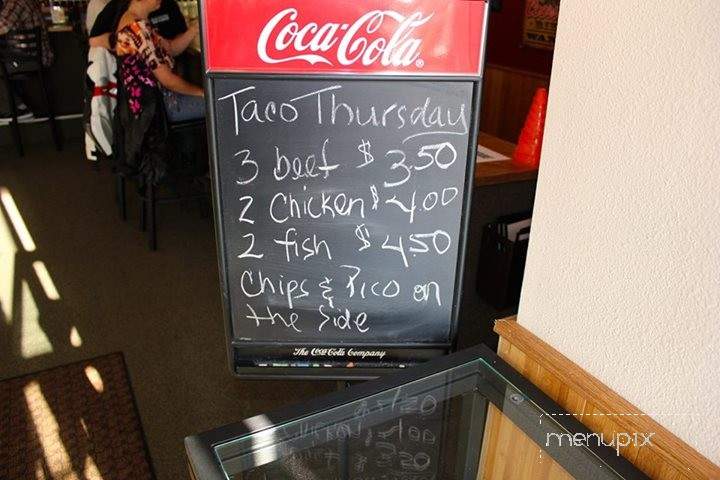 Coca-Cola
Taco Thursday
3 beef $3.50
2 Chicken $4.00
2 fish $4.50
Chips & Pico on
the Side
The Coca-Cola Company
menupix